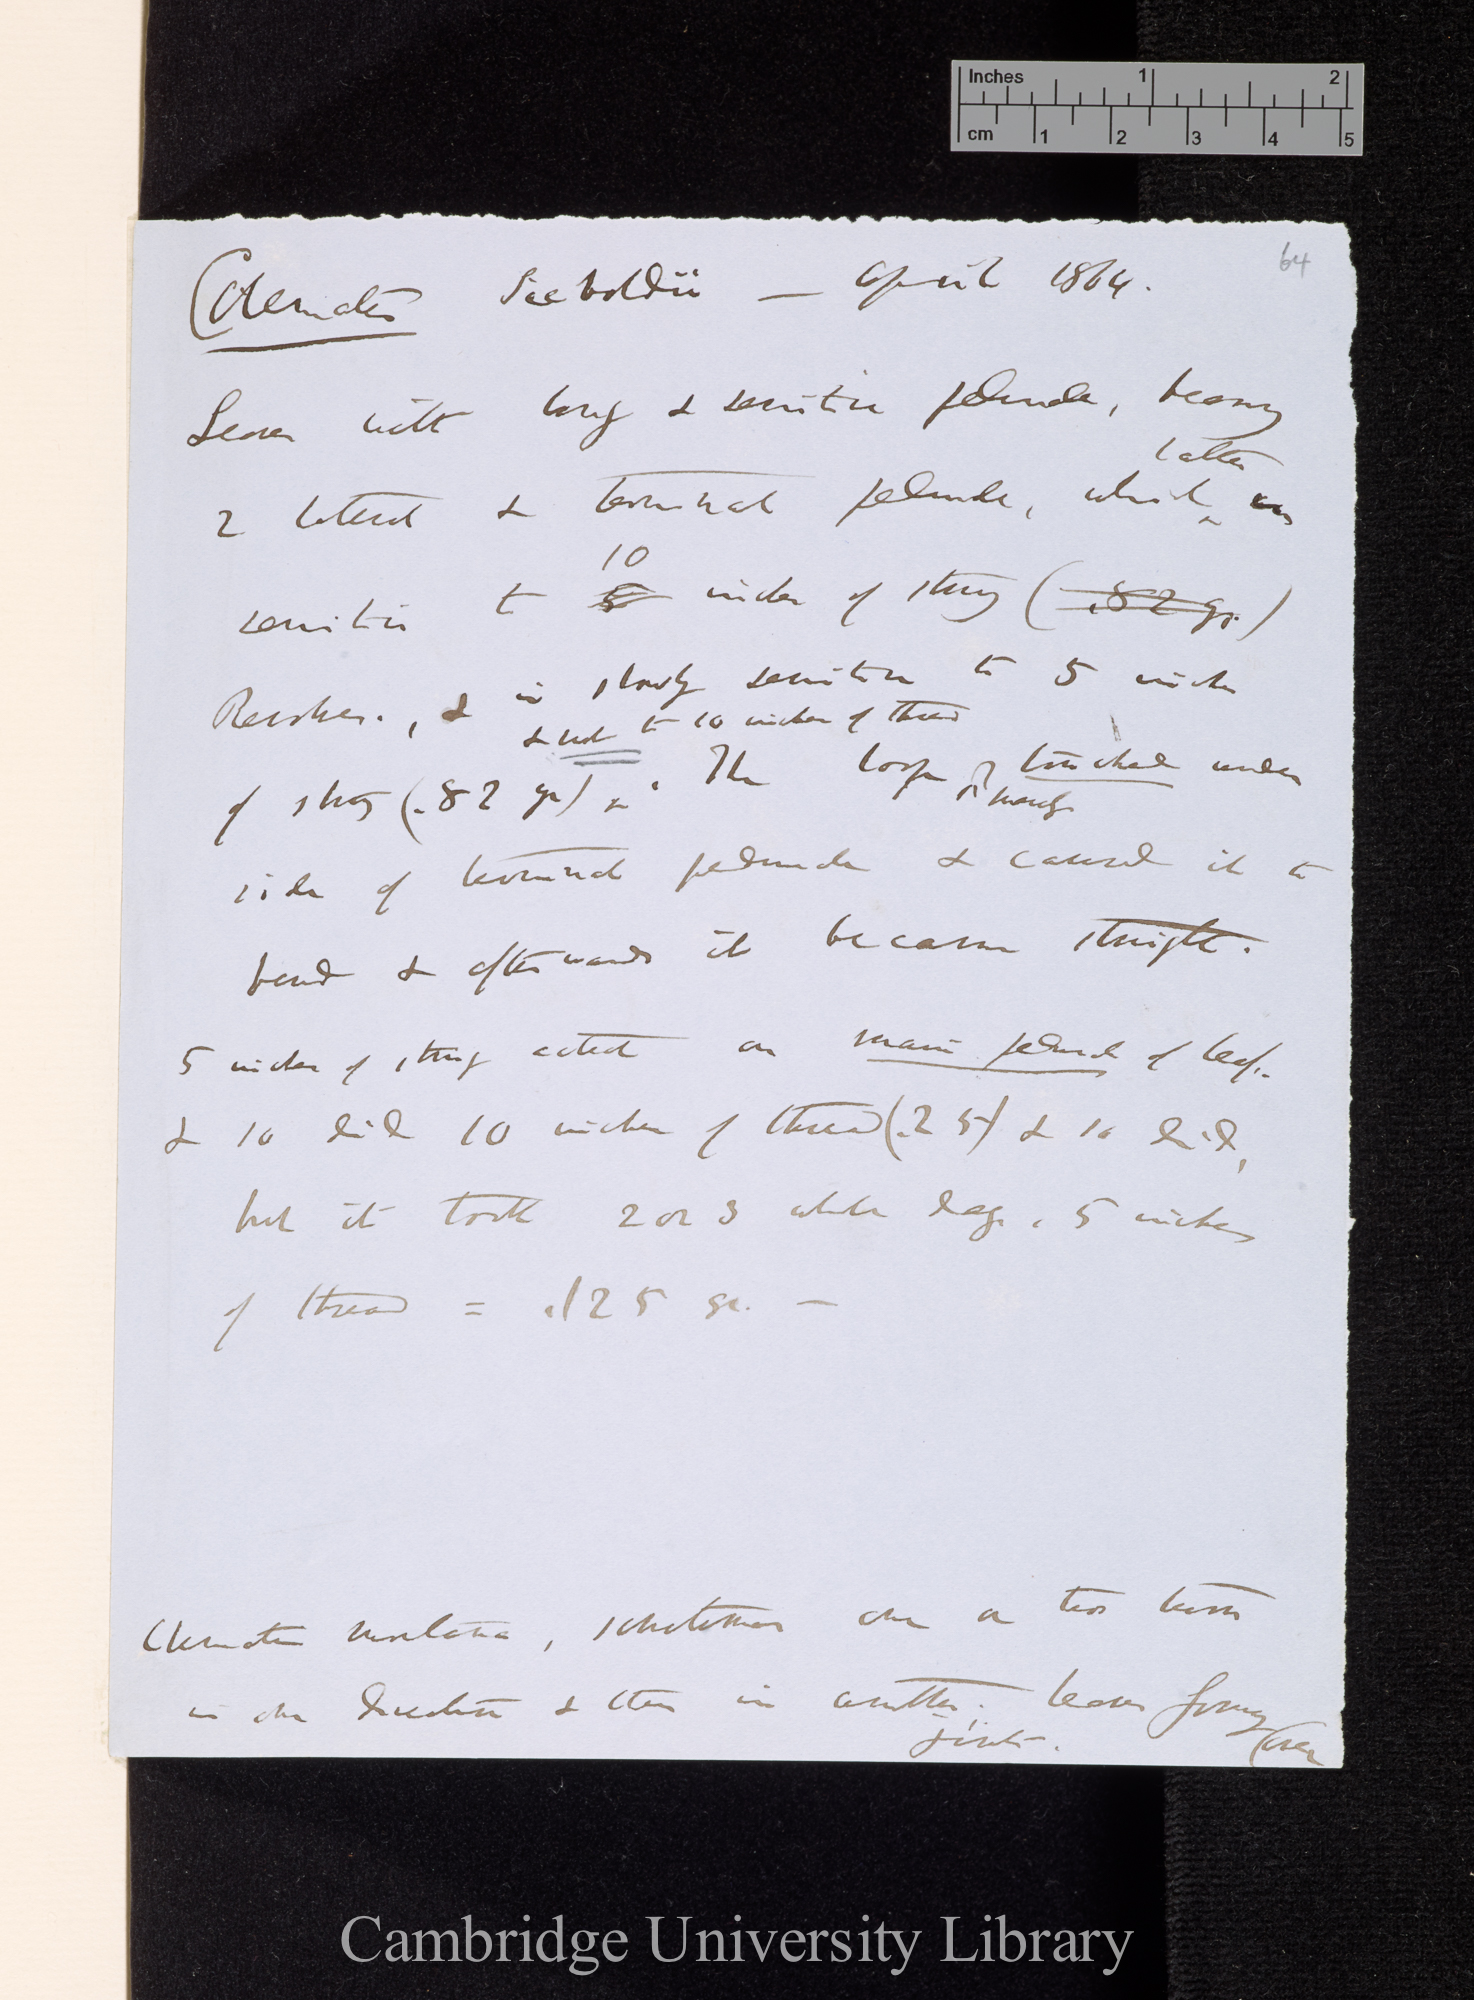 Inches 1 2
cm 1 2 3 4 5
64
Clematis Sieboldii — April 1864.
Leaves with long & sensitive peduncle, bearing
2 lateral & terminal peduncle, which latter are
sensitive to 5 10 inches of string (.82 gr.)
Revolves., & is slowly sensitive to 5 inches
& not to 10 inches of thread
of string (.82 gr). The loop touched under
side of terminal peduncle & caused it to
bend & afterwards it became straight.
5 inches of string acted on main peduncle of leaf.
& so did 10 inches of thread (.25) & so did,
but it took 2 or 3 whole days. 5 inches
of thread = .125 gr. —
Clematis montana, sometimes one or two turns
in one direction & then in another. Leaves young
(over